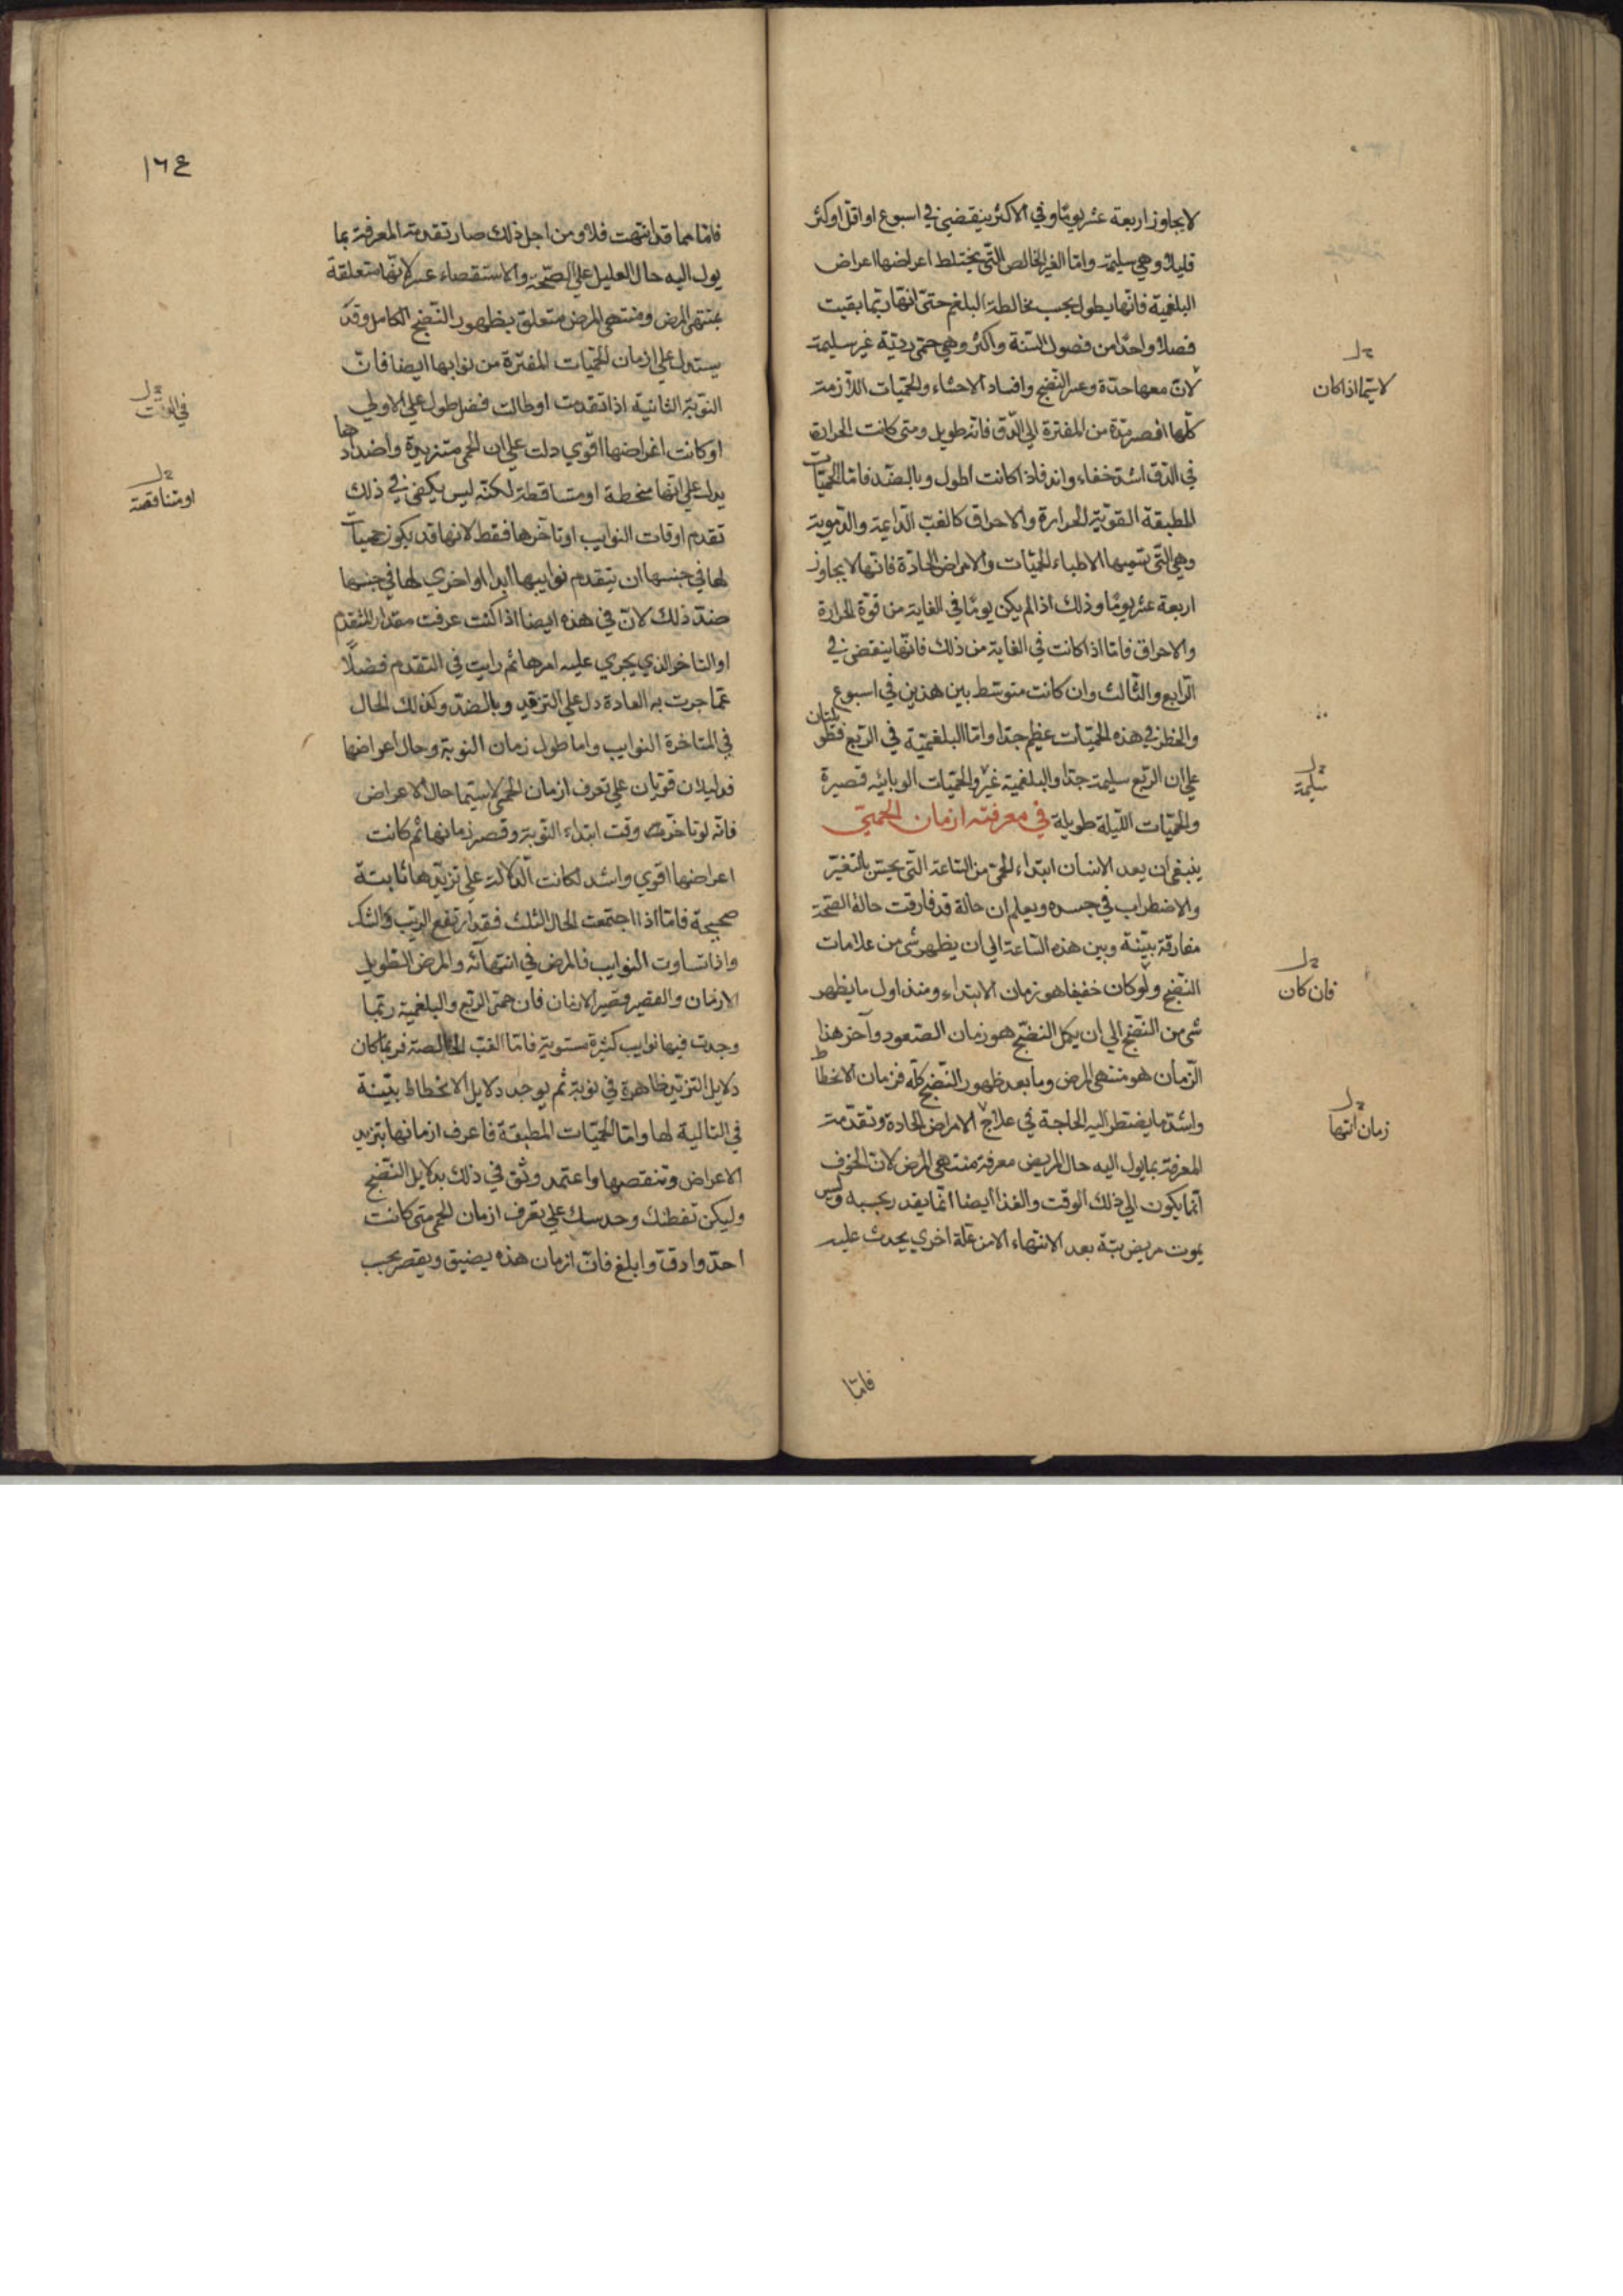 لا يجاوز اربعة عشر يوما وفي الاكثر ينقضي في اسبوع او اقل او اكثر
قليلا وهي سليمة واما الغير الخالص التي يختلط اعراضها اعراض
البلغمية فانها يطول بحسب مخالطة البلغم حتى انها ربما بقيت
فصلا واحدا من فصول السنة واكثر وهي حمى ردية غير سليمة
لان معها حدة وعسر النضج وافساد الاحشاء والحميات اللازمة
كلها اقصر مدة من المفترة الى الدق فانه طويل ومتى كانت الحرارة
في الدق اشد خفاء واندفاذا كانت اطول وبالضد فاما الحميات
المطبقة القوية الحرارة والاحراق كالغب الدايمة والدموية
وهي التي تسميها الاطباء الحميات والامراض الحادة فانها لا يجاوز
اربعة عشر يوما وذلك اذا لم يكن يوما في الغاية من قوة الحرارة
والاحراق فاما اذا كانت في الغاية من ذلك فانها ينقضي في
الرابع والثالث وان كانت متوسط بين هذين في اسبوع
والخطر في هذه الحميات عظيم جدا واما البلغمية في الربع فطويلتان
على ان الربع سليمة جدا والبلغمية غير والحميات الوبائيه قصيرة
والحميات الليلة طويلة في معرفته ازمان الحمى
ينبغي ان يعد الانسان ابتداء الحمى من الساعة التي يحس بالتغير
والاضطراب في جسده ويعلم ان حالة قد فارقت حالة الصحة
مفارقة بينة وبين هذه الساعة الى ان يظهر شي من علامات
النضج ولو كان خفيفا هو زمان الابتداء ومنذ اول ما يظهر
شي من النضج الي ان يكمل النضج هو زمان الصعود وآخر هذا
الزمان هو منتهى المرض وما بعد ظهور النضج كله فزمان الانحطاط
واشد ما يضطر اليه الحاجة في علاج الامراض الحادة وتقدمة
المعرفة بما يول اليه حال المريض معرفة منتهى المرض لان الخوف
انما يكون الي ذلك الوقت والغذا ايضا انما يقدر بحسبه وليس
يموت مريض بتة بعد الانتهاء الا من علة اخري يحدث عليه
فاما
لا سيما اذا كان
سليمة
فان كان
زمان انتها
١٦٤
فاما مما قد انتهت فلا ومن اجل ذلك صار تقدمة المعرفة بما
يول اليه حال العليل على الصحة والاستقصاء عسر لانها متعلقة
بمنتهى المرض ومنتهى المرض متعلق بظهور النضج الكامل وقد
يستدل علي ازمان الحميات المفترة من نوابها ايضا فان
النوبة الثانية اذا تقدمت او طالت فضل طول علي الاولي
او كانت اغراضها اقوي دلت علي ان الحمى متزيدة واضدادها
يدل علي انها منحطة او متساقطة لكنه ليس يكفي في ذلك
تقدم اوقات النوايب او تاخرها فقط لانها قد يكون حميات
لها في جنسها ان يتقدم نوايبها ابدا او اخري لها في جنسها
ضد ذلك لان في هذه ايضا اذا كنت عرفت مقدار التقدم
او التاخر الذي يجري عليه امرها ثم رايت في التقدم فضلا
عما جرت به العادة دل علي التزيد وبالضد وكذلك الحال
في المتاخرة النوايب واما طول زمان النوبة وحال اعراضها
فدليلان قويان علي تعرف ازمان الحمى لا سيما حال الاعراض
فانه لو تاخرت وقت ابتداء النوبة وقصر زمانها ثم كانت
اعراضها اقوي واشد لكانت الدلالة علي تزيدها ثابتة
صحيحة فاما اذا اجتمعت الحال الثلث فقد ارتفع الريب والشك
واذا تساوت النوايب فالمرض في انتهائه والمرض الطويل
الازمان والقصير قصير الازمان فان حمى الربع والبلغمية ربما
وجدت فيها نوايب كثيرة مستوية فاما الغب الخالصة فربما كان
دلايل التزيد ظاهرة في نوبة ثم يوجد دلايل الانحطاط بينة
في التالية لها واما الحميات المطبقة فاعرف ازمانها بتزيد
الاعراض وتنقصها واعتمد وثق في ذلك بدلايل النضج
وليكن تفطنك وحدسك علي تعرف ازمان الحمى متى كانت
احد وادق وابلغ فان ازمان هذه يضيق ويقصر بحسب
او متناقصة